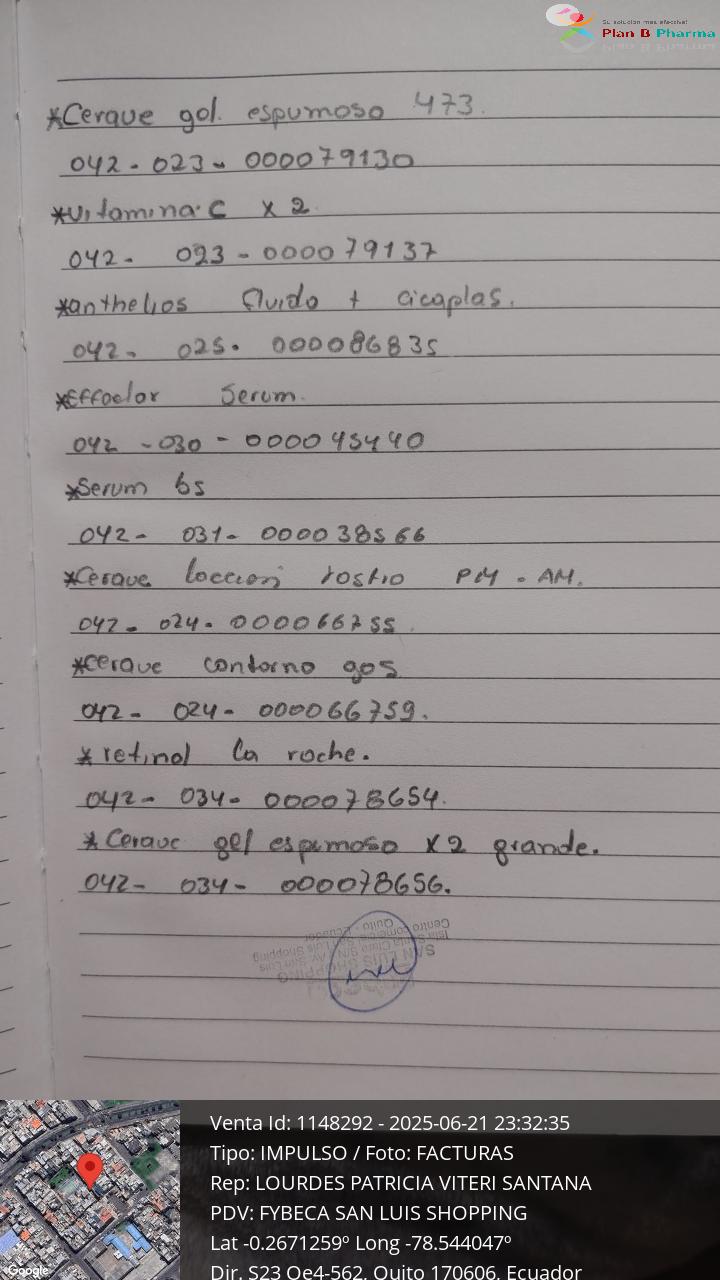 Su solución más efectiva!
Plan B Pharma
*Cerave gol. espumoso 473.
042-023-000079130
*Vitamina C x 2
042- 023-000079137
*anthelios fluido + cicaplas.
042- 025- 000086835
*Effaclar Serum.
042-030-000045440
*Serum b5
042- 031-000038566
*Cerave loccion rostro PM - AM.
042-024-000066755
*cerave contorno gos
042- 024- 000066759.
*retinol la roche.
042- 034- 000078654.
*Cerave gel espumoso x2 grande.
042- 034- 000078656.
SAN LUIS SHOPPING
Isla Santa Clara S/N y Av. San Luis
Centro Comercial San Luis Shopping
Quito - Ecuador
Venta Id: 1148292 - 2025-06-21 23:32:35
Tipo: IMPULSO / Foto: FACTURAS
Rep: LOURDES PATRICIA VITERI SANTANA
PDV: FYBECA SAN LUIS SHOPPING
Lat -0.2671259º Long -78.544047º
Dir. S23 Oe4-562, Quito 170606, Ecuador
Google